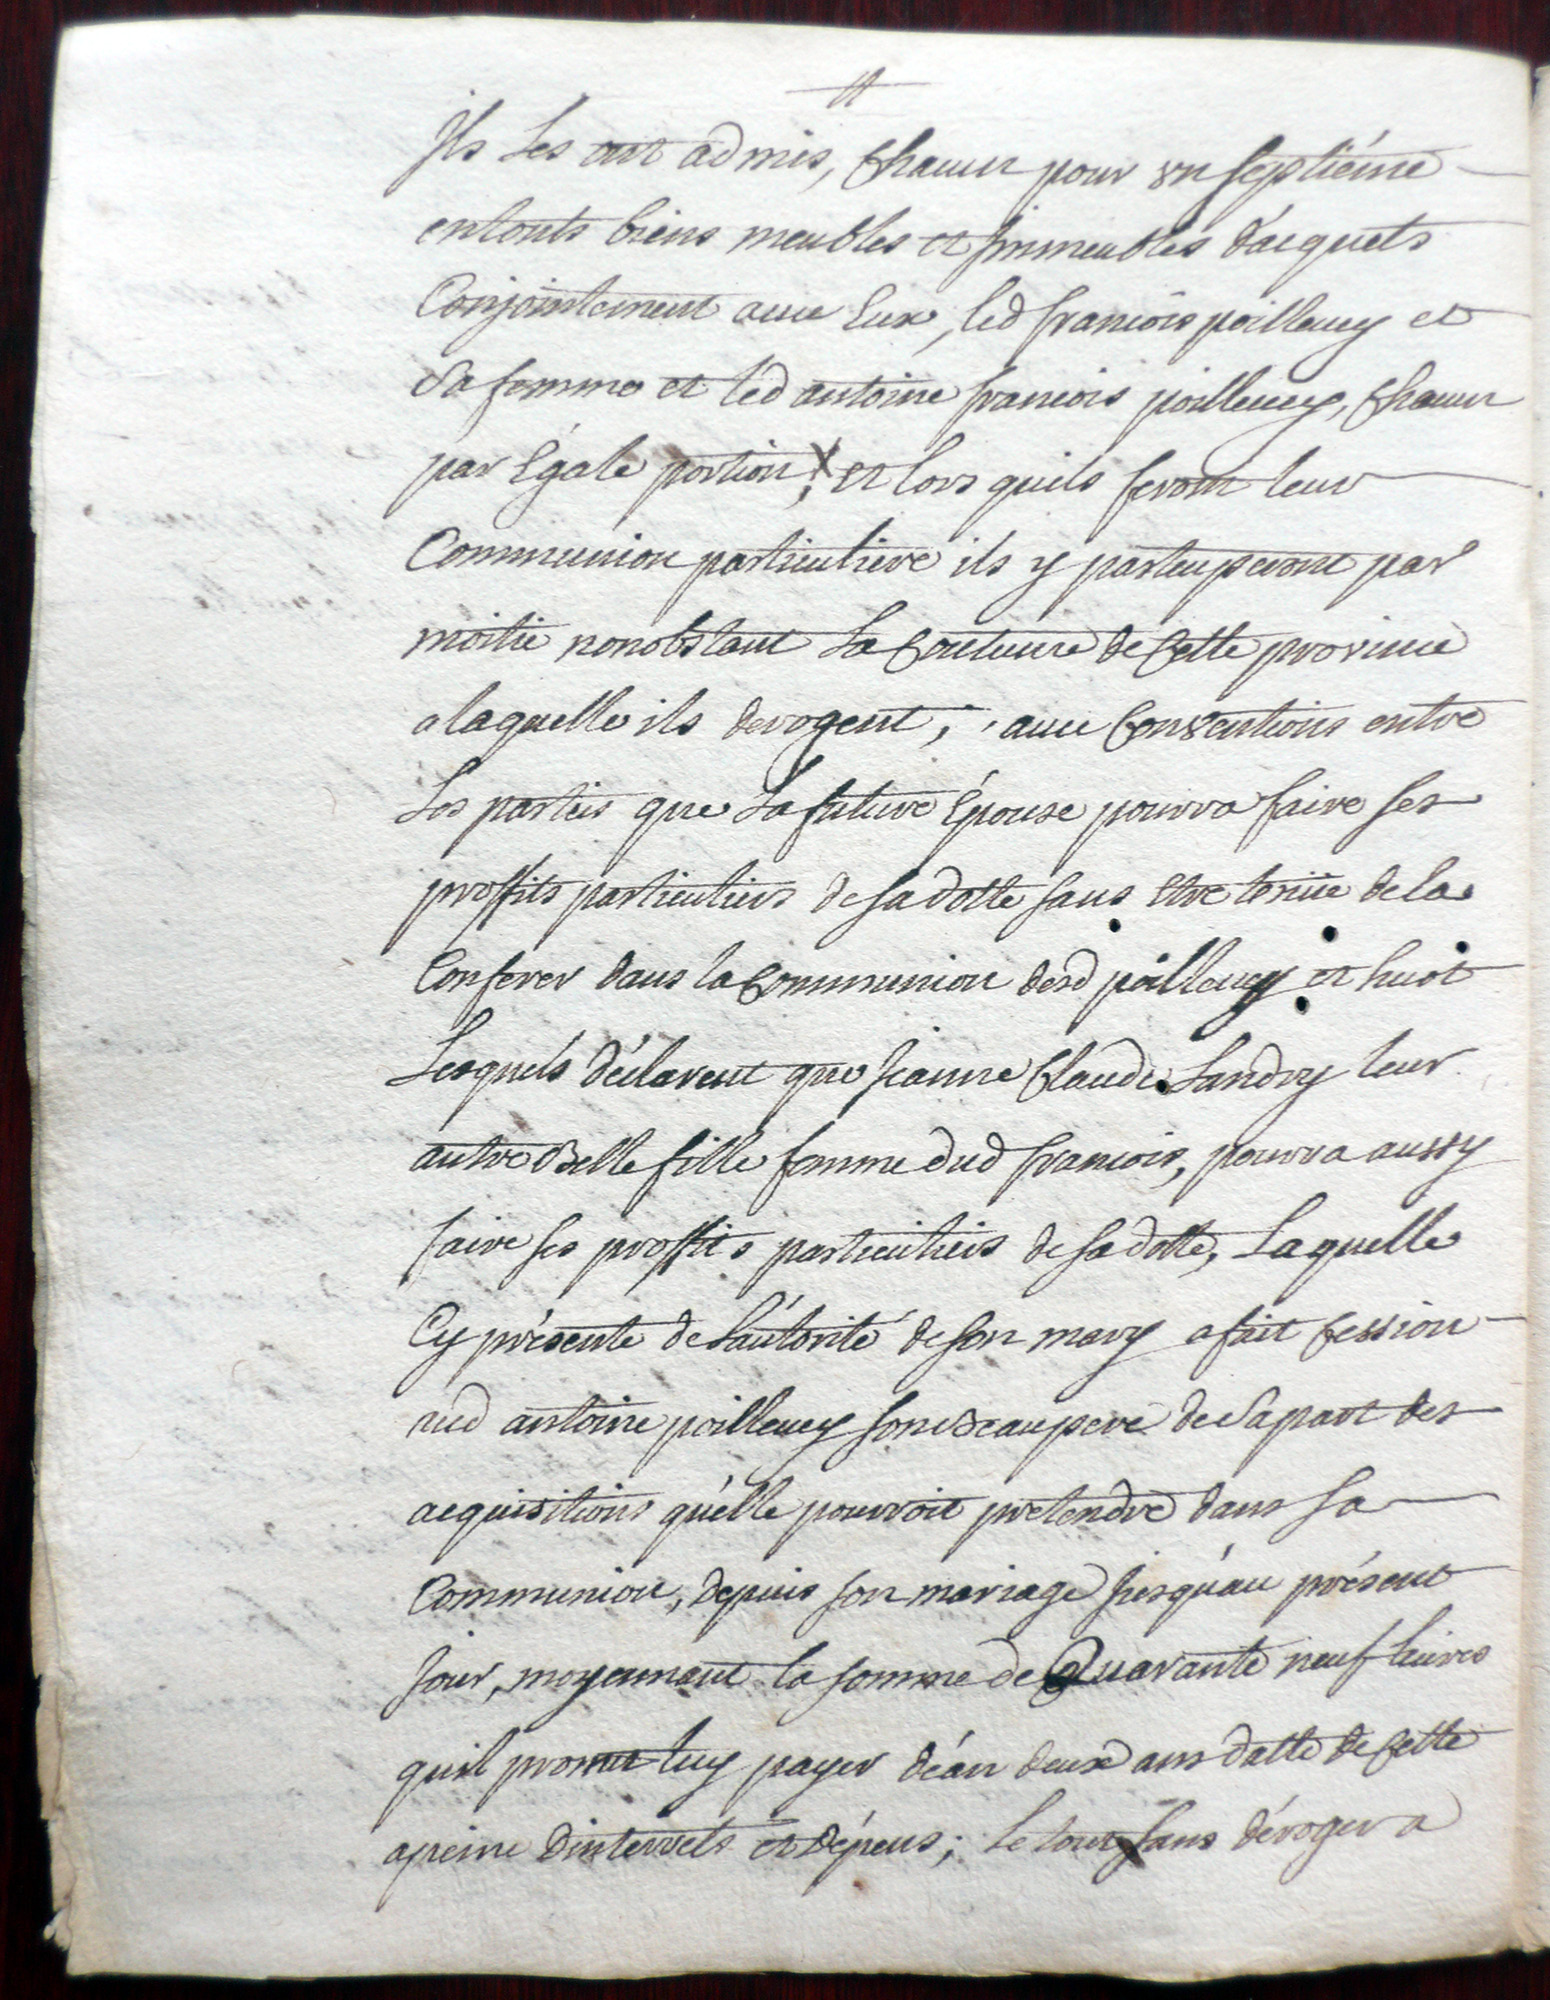 Ils Les ont admis, Chacun pour un septiéme
en touts biens meubles et immeubles d'acquets
Conjointement avec Eux, led françois poilleuey et
Sa femme et led antoine francois poilleuey, Chacun
par Egale portion; et lors quils feront leur
Communion particuliere ils y participeront par
moitié nonobstant La Coutume de Cette province
a laquelle ils derogent; avec Conventions entre
Les parties que La future Epouse pourra faire ses
proffits particuliers de sa dotte sans Etre tenüe de la
Conferer dans la Communion desd poilleuey et huot
Lesquels déclarent que Jeanne Claude Landry leur
autre Belle fille femme dud francois, pourra aussy
faire ses proffits particuliers de sa dotte, Laquelle
Cy présente de L'autorité de son mary a fait Cession
aud antoine poilleuey son Beaupere de Sa part des
acquisitions qu'elle pourroit pretendre dans sa
Communion, depuis son mariage jusqu'au présent
jour, moyennant la somme de Quarante neuf livres
quil promet luy payer d'én deux ans datte de Cette
a peine d'interrets et dépens; Le tout sans déroger a